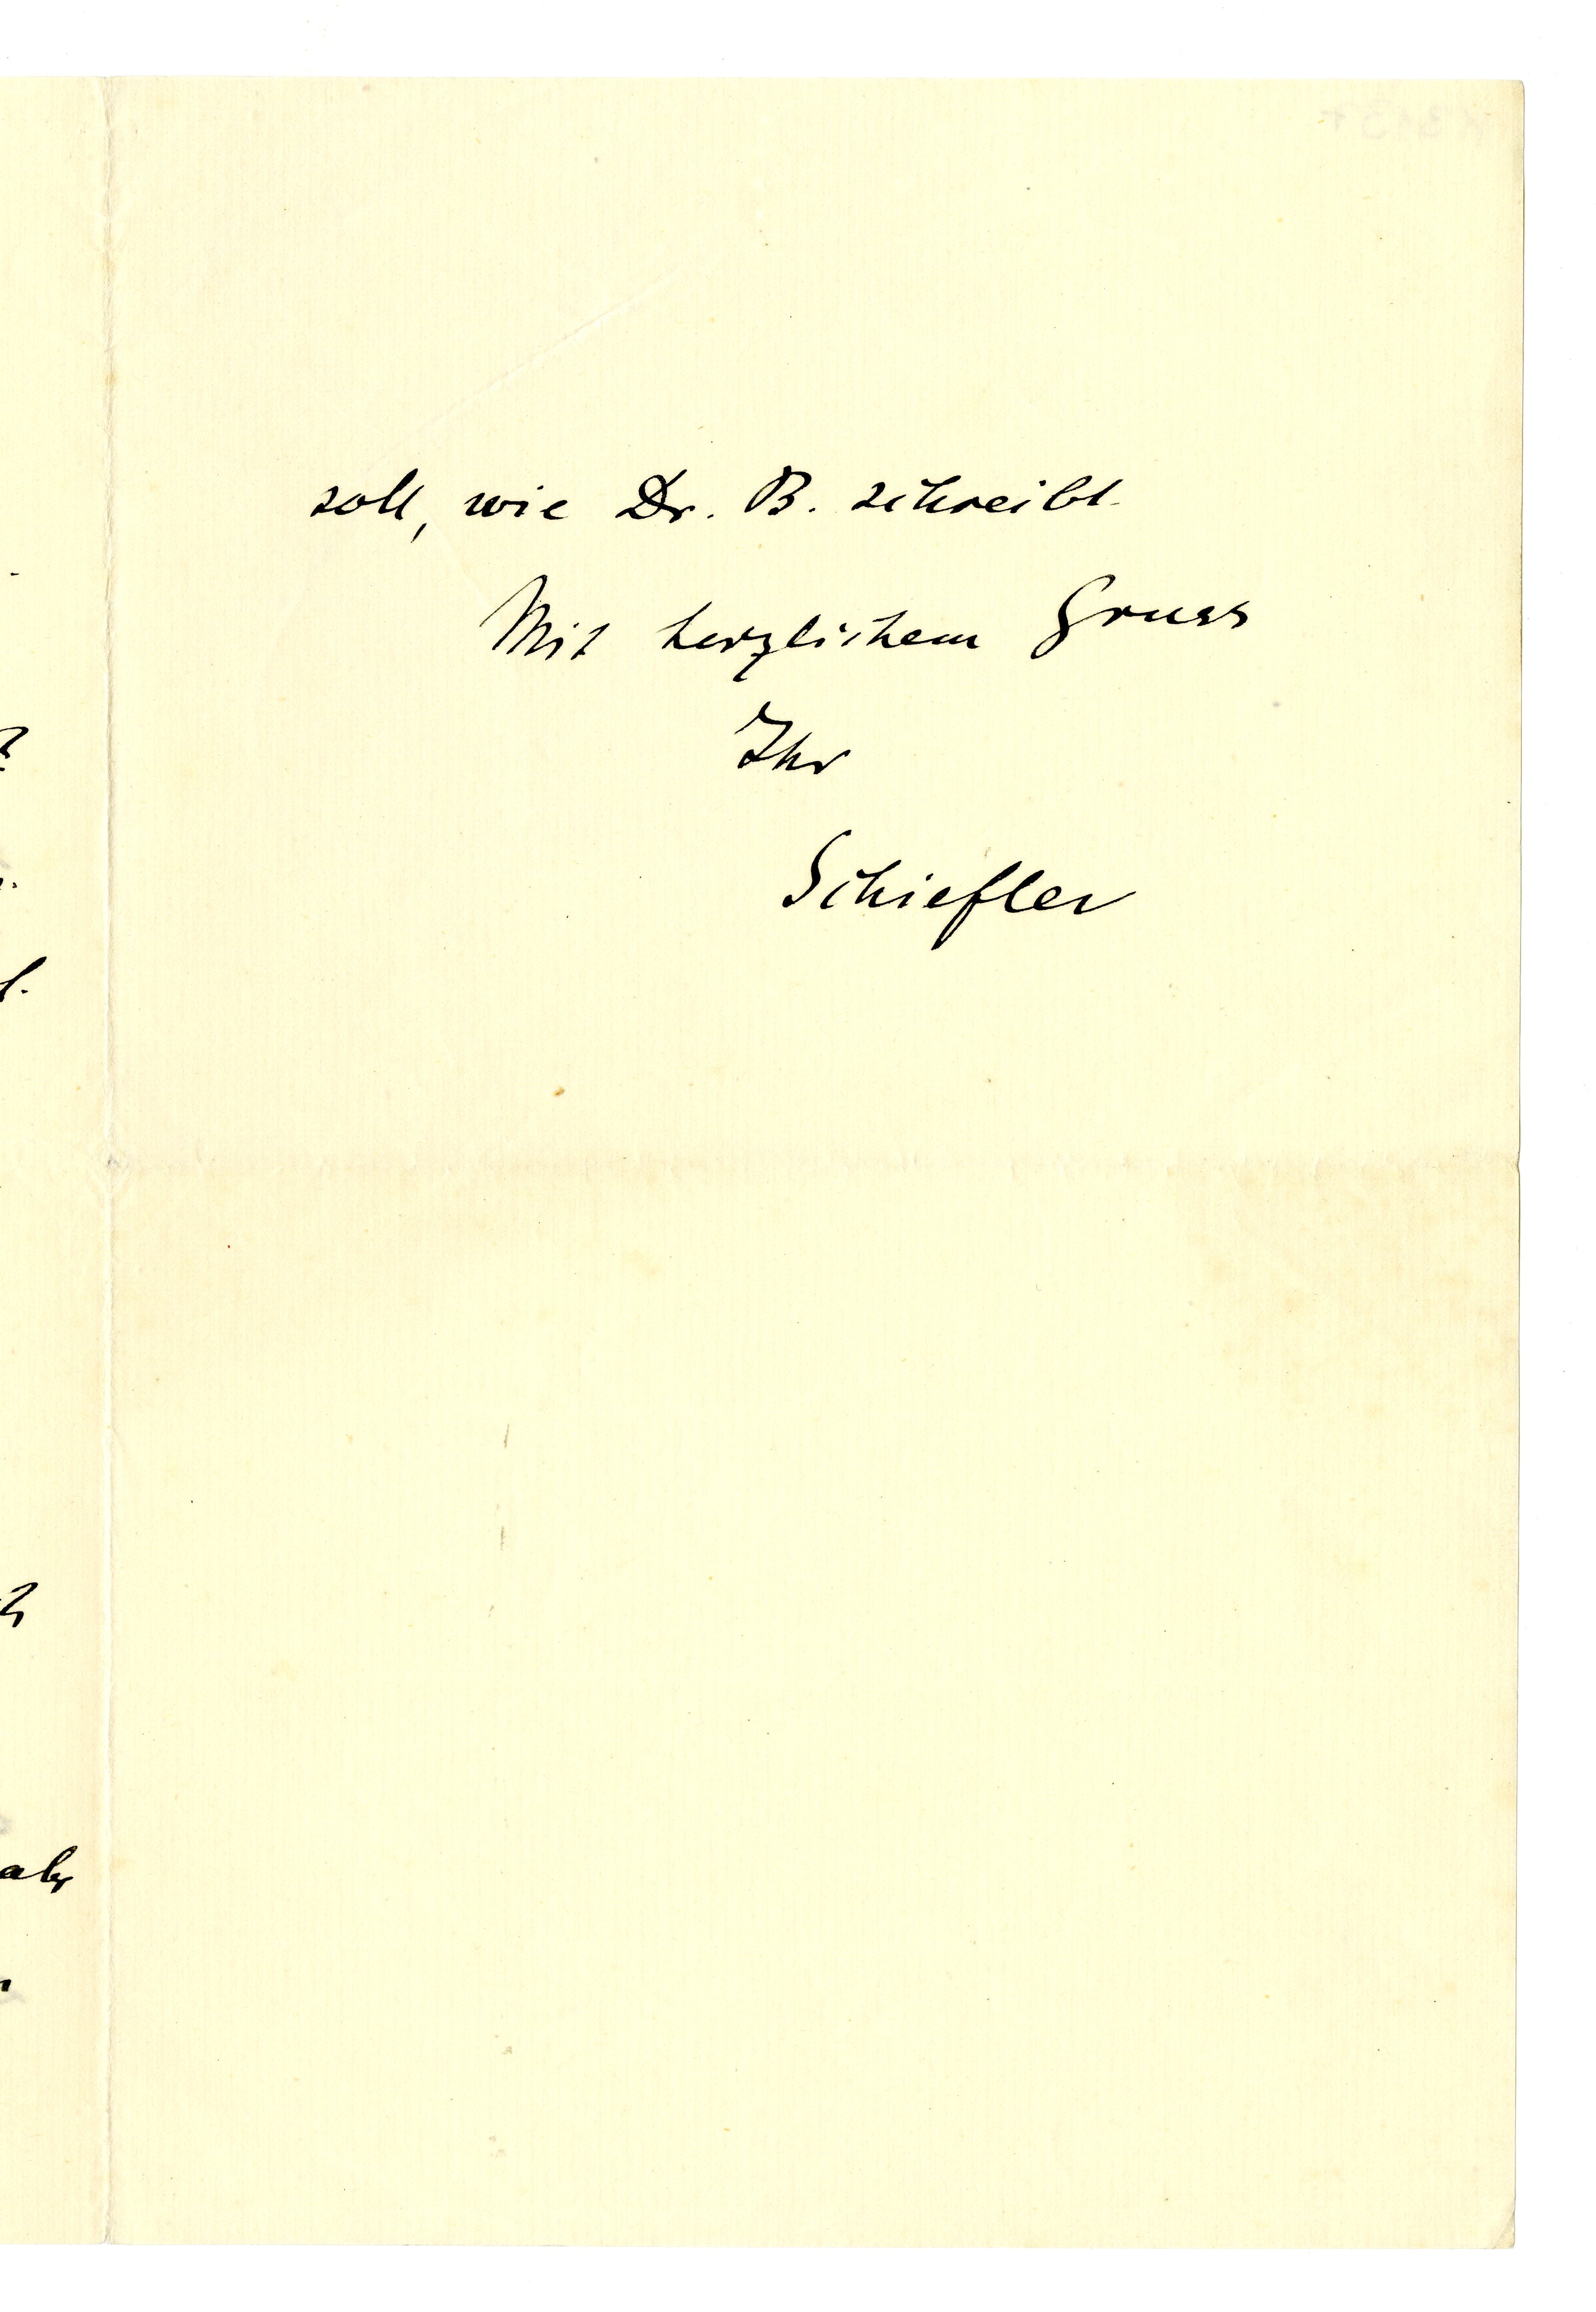 soll, wie Dr. B. schreibt.
Mit herzlichem Gruss
Ihr
Schiefler